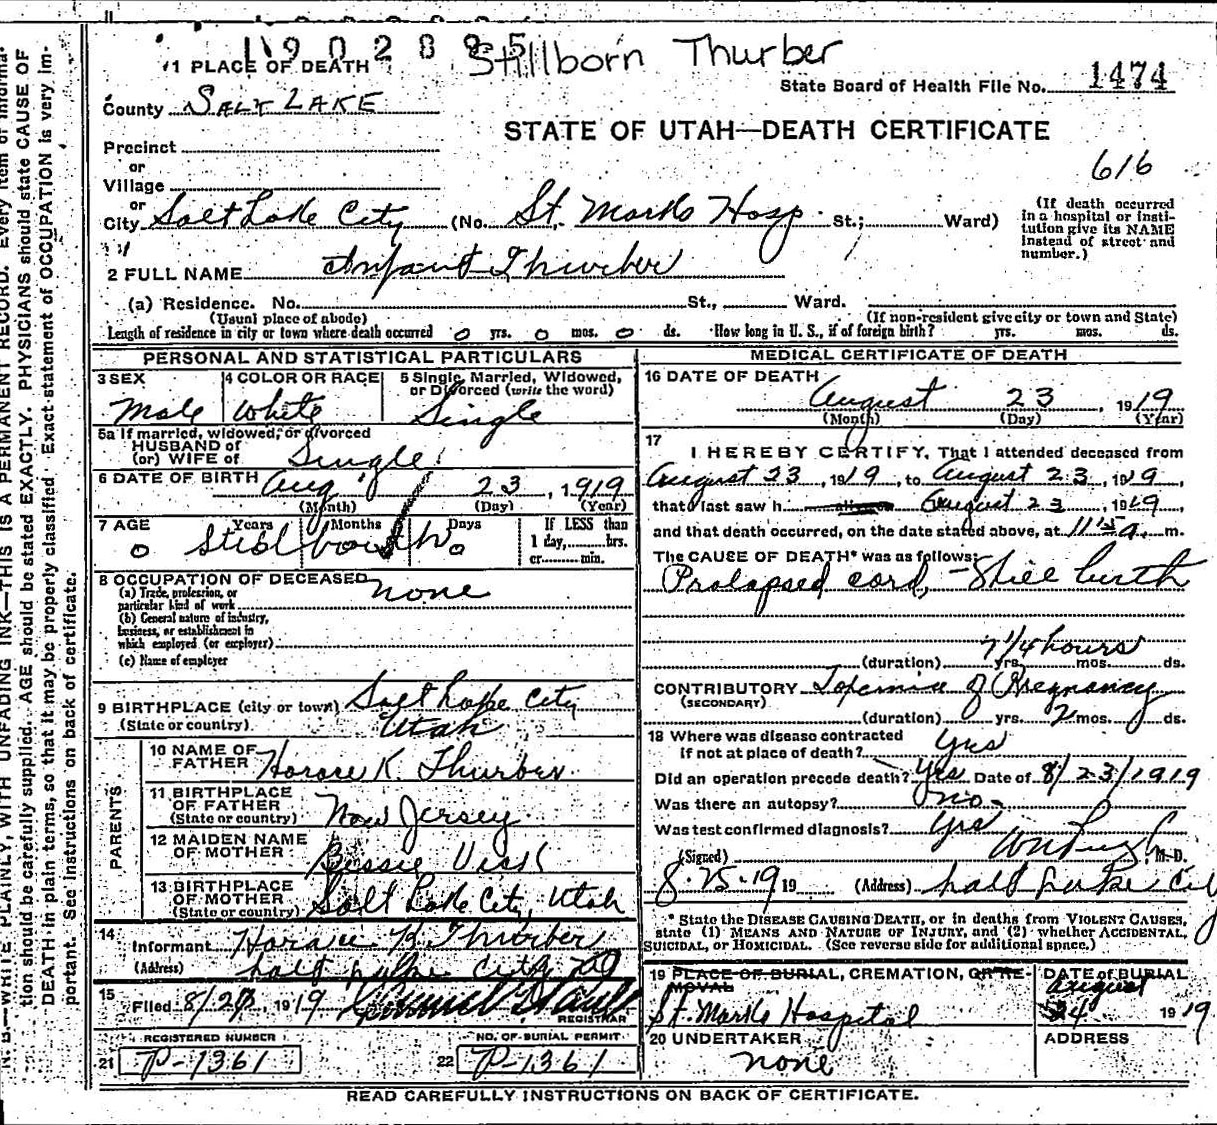 1902895
Stillborn Thurber
1 PLACE OF DEATH
State Board of Health File No. 1474
County SALT LAKE
STATE OF UTAH—DEATH CERTIFICATE
Precinct
616
or
Village
or
City Salt Lake City (No. St. Marks Hosp. St.; Ward)
(If death occurred in a hospital or institution give its NAME instead of street and number.)
2 FULL NAME Infant Thurber
(a) Residence. No. St., Ward.
(Usual place of abode) (If non-resident give city or town and State)
Length of residence in city or town where death occurred 0 yrs. 0 mos. 0 ds. How long in U. S., if of foreign birth? yrs. mos. ds.
PERSONAL AND STATISTICAL PARTICULARS
3 SEX Male
4 COLOR OR RACE White
5 Single, Married, Widowed, or Divorced (write the word) Single
5a If married, widowed, or divorced
HUSBAND of
(or) WIFE of Single
6 DATE OF BIRTH Aug 23, 1919
(Month) (Day) (Year)
7 AGE Years Months Days
0 Stillborn 0
If LESS than
1 day, hrs.
or min.
8 OCCUPATION OF DECEASED none
(a) Trade, profession, or
particular kind of work
(b) General nature of industry,
business, or establishment in
which employed (or employer)
(c) Name of employer
9 BIRTHPLACE (city or town) Salt Lake City
(State or country) Utah
PARENTS
10 NAME OF FATHER Horace K. Thurber
11 BIRTHPLACE OF FATHER
(State or country) New Jersey
12 MAIDEN NAME OF MOTHER Bessie
13 BIRTHPLACE OF MOTHER
(State or country) Salt Lake City, Utah
14
Informant Horace K. Thurber
(Address) Salt Lake City
15
Filed 8/2 , 1919
REGISTRAR
REGISTERED NUMBER
21 P-1361
NO. OF BURIAL PERMIT
22 P-1361
MEDICAL CERTIFICATE OF DEATH
16 DATE OF DEATH
August 23, 1919
(Month) (Day) (Year)
17
I HEREBY CERTIFY, That I attended deceased from
August 23, 1919, to August 23, 1919,
that I last saw h August 23, 1919,
and that death occurred, on the date stated above, at 11 15 a. m.
The CAUSE OF DEATH* was as follows:
Prolapsed cord, - Still birth
7 1/4 hours
(duration) yrs. mos. ds.
CONTRIBUTORY Toxemia of Pregnancy
(SECONDARY)
(duration) yrs. 2 mos. ds.
18 Where was disease contracted
if not at place of death? Yes
Did an operation precede death? Yes Date of 8/23/1919
Was there an autopsy? no.
Was test confirmed diagnosis? Yes
(Signed) M-D.
8-25-19 19 (Address) Salt Lake City
* State the DISEASE CAUSING DEATH, or in deaths from VIOLENT CAUSES,
state (1) MEANS AND NATURE OF INJURY, and (2) whether ACCIDENTAL,
SUICIDAL, or HOMICIDAL. (See reverse side for additional space.)
19 PLACE OF BURIAL, CREMATION, OR REMOVAL
St. Marks Hospital
DATE of BURIAL
August
24 1919
20 UNDERTAKER
none
ADDRESS
READ CAREFULLY INSTRUCTIONS ON BACK OF CERTIFICATE.
N. B.—WRITE PLAINLY, WITH UNFADING INK—THIS IS A PERMANENT RECORD. Every item of informa-
tion should be carefully supplied. AGE should be stated EXACTLY. PHYSICIANS should state CAUSE OF
DEATH in plain terms, so that it may be properly classified. Exact statement of OCCUPATION is very im-
portant. See instructions on back of certificate.